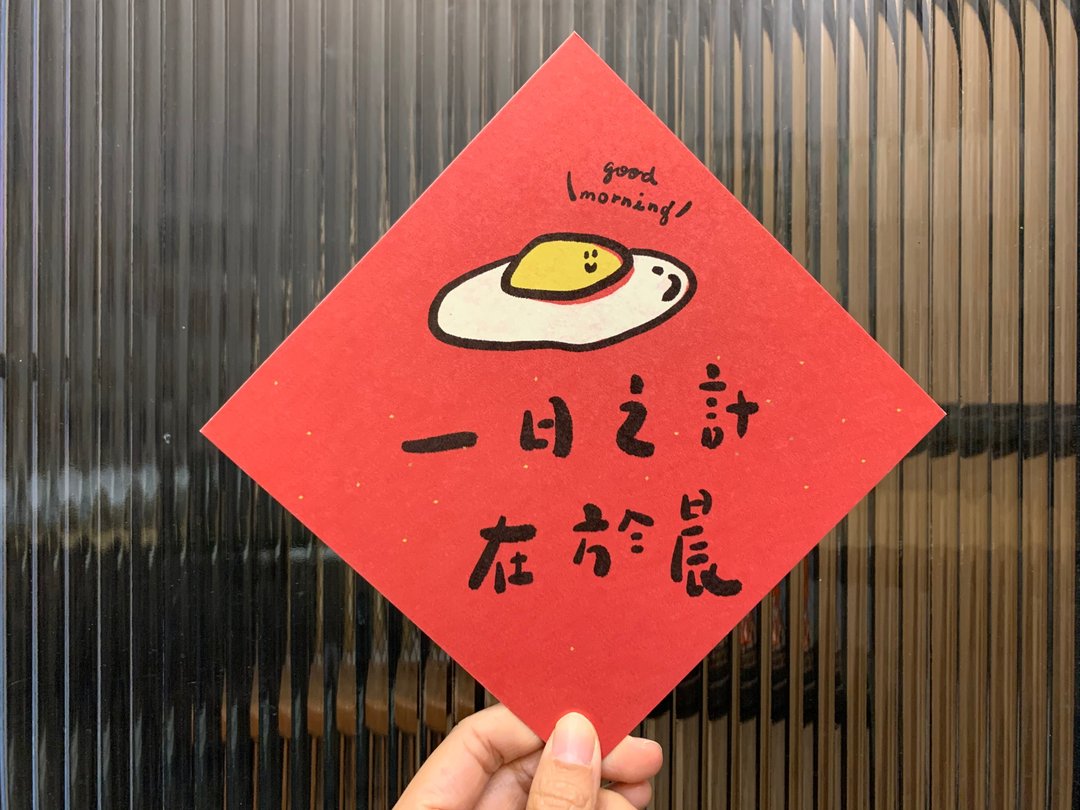 good
morning
一日之計
在於晨